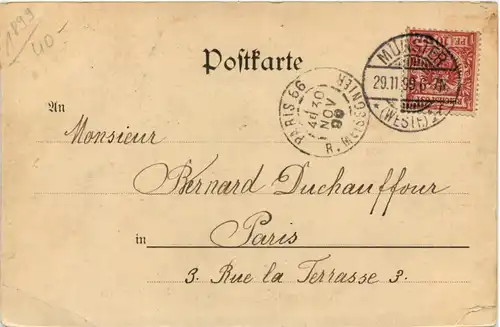 1899
40-
Postkarte
MÜNSTER
29.11.99.6-7N.
*(WESTF) 1*
PARIS 66
4E 30
NOV
99
R. MEISSONIER
An
Monsieur
Bernard Duchauffour
in Paris
3. Rue la Terrasse 3.